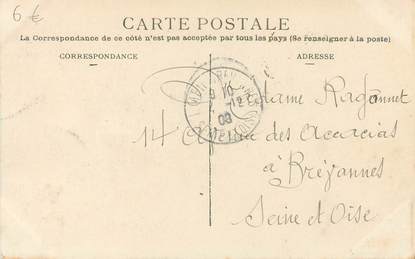 6 €
CARTE POSTALE
La Correspondance de ce côté n'est pas acceptée par tous les pays (Se renseigner à la poste)
CORRESPONDANCE
ADRESSE
Madame Ragonnet
14 Avenue des Acacias
à Brévannes
Seine et Oise